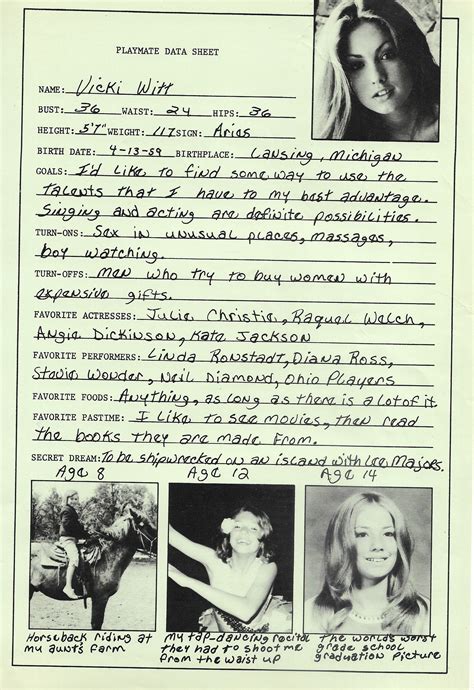 PLAYMATE DATA SHEET
NAME: Vicki Witt
BUST: 36 WAIST: 24 HIPS: 36
HEIGHT: 5'7" WEIGHT: 117 SIGN: Aries
BIRTH DATE: 4-13-59 BIRTHPLACE: Lansing, Michigan
GOALS: I'd like to find some way to use the
talents that I have to my best advantage.
Singing and acting are definite possibilities.
TURN-ONS: Sex in unusual places, massages,
boy watching.
TURN-OFFS: men who try to buy women with
expensive gifts.
FAVORITE ACTRESSES: Julie Christie, Raquel Welch,
Angie Dickinson, Kate Jackson
FAVORITE PERFORMERS: Linda Ronstadt, Diana Ross,
Stevie Wonder, Neil Diamond, Ohio Players
FAVORITE FOODS: Anything, as long as there is a lot of it
FAVORITE PASTIME: I like to see movies, then read
the books they are made from.
SECRET DREAM: To be shipwrecked on an island with Lee Majors.
Age 8 Age 12 Age 14
Horseback riding at
my aunt's farm
my tap-dancing recital
they had to shoot me
from the waist up
the world's worst
grade school
graduation picture